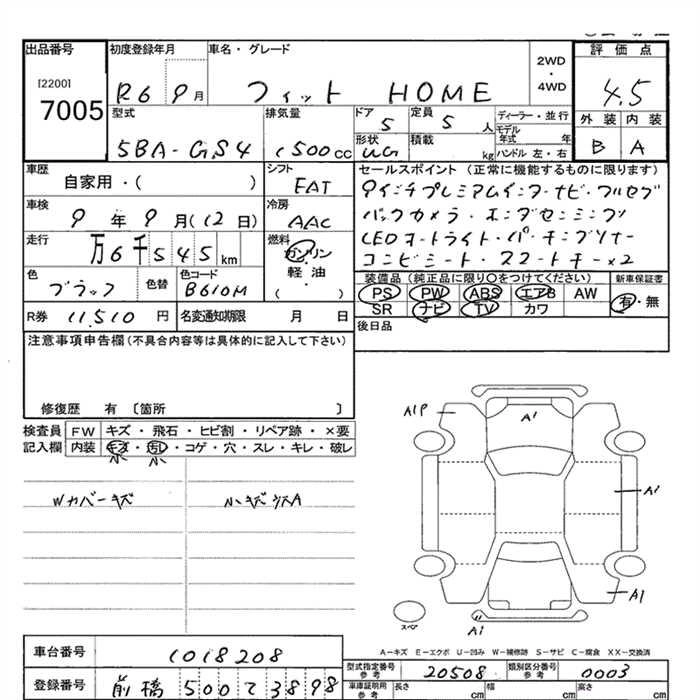 出品番号 初度登録年月 車名・グレード 2WD・4WD 評価点
[2200]
7005 R6 9月 フィット HOME 4.5
型式 排気量 ドア 定員 ディーラー・並行 外装 内装
5BA-GS4 1500cc 5 5人 モデル年式 年 B A
形状 積載 kg ハンドル 左・右
車歴 シフト セールスポイント(正常に機能するものに限ります)
自家用・( ) FAT 9インチプレミアムインターナビ・フルセグ
車検 冷房 バックカメラ・
9年9月(12日) AAC LEDオートライト・
走行 燃料 コンビシート・スマートキー×2
万6千545km ガソリン
軽・油
( )
色 色替 色コード 装備品(純正品に限り○をつけてください) 新車保証書
ブラック B610M PS PW ABS エアB AW 有・無
R券 11,510円 名変通知期限 月 日 SR ナビ TV カワ
後日品
注意事項申告欄(不具合内容等は具体的に記入して下さい)
修復歴 有 〔箇所 〕
検査員 FW キズ・飛石・ヒビ割・リペア跡・×要
記入欄 内装 キズ・汚レ・コゲ・穴・スレ・キレ・破レ
小 小
Wカバーキズ 小キズ
A1P A1
A1
A1
スペア A1
A-キズ E-エクボ U-凹み W-補修跡 S-サビ C-腐食 XX-交換済
車台番号 1018208
型式指定番号 参考 20508 類別区分番号 参考 0003
登録番号 前橋 500 て 3898
車庫証明用 参考 長さ cm 幅 cm 高さ cm